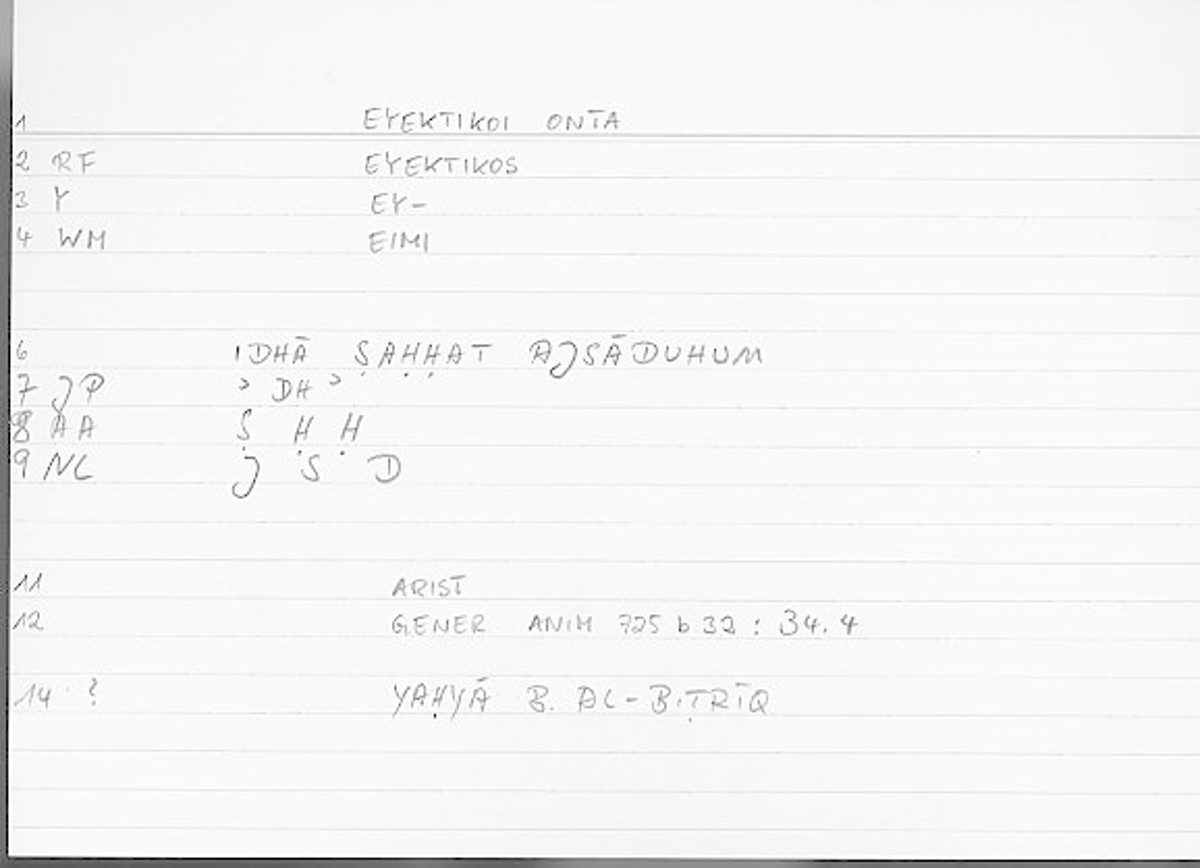 1 EYEKTIKOI ONTA
2 RF EYEKTIKOS
3 Y EY-
4 WM EIMI
6 IDHĀ ṢAḤḤAT AJSĀDUHUM
7 JP ʾ DH ʾ
8 AA Ṣ Ḥ Ḥ
9 NL J S D
11 ARIST
12 GENER ANIM 725 b 32 : 34.4
14 ? YAḤYĀ B. AL-BIṬRĪQ